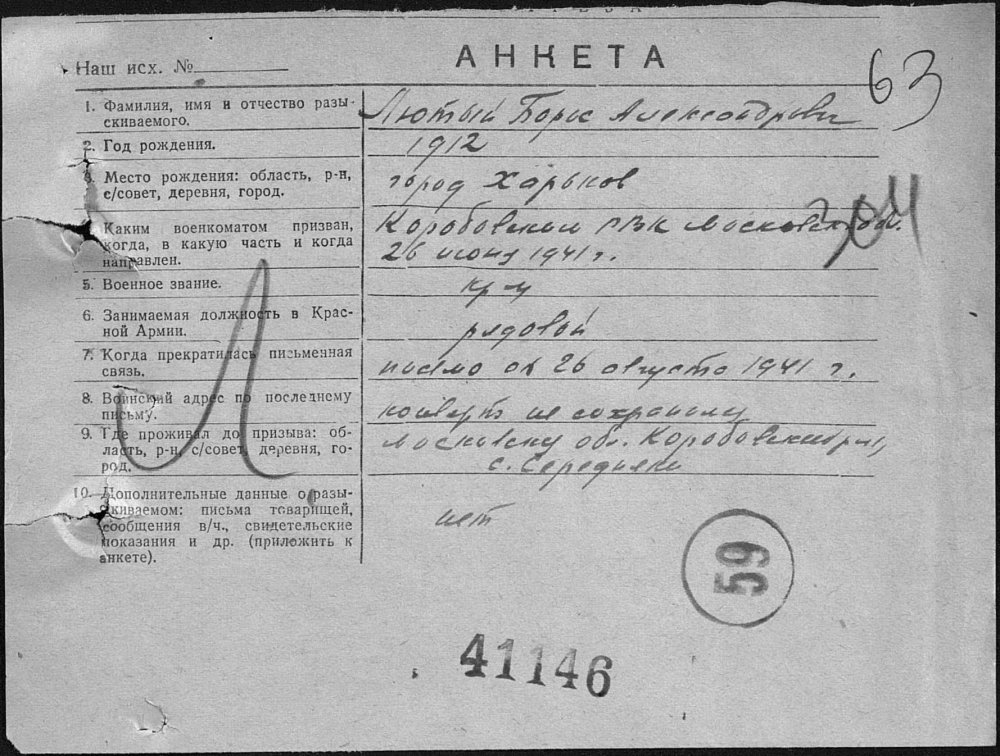 АНКЕТА
63
Наш исх. №
1. Фамилия, имя и отчество разы-
скиваемого.
Лютый Борис Александрович
2. Год рождения.
1912
Место рождения: область, р-н,
с/совет, деревня, город.
город Харьков
Каким военкоматом призван,
когда, в какую часть и когда
направлен.
Коробовским РВК Московской обл.
26 июня 1941 г.
5. Военное звание.
кр-ц
6. Занимаемая должность в Крас-
ной Армии.
рядовой
7. Когда прекратилась письменная
связь.
письмо от 26 августа 1941 г.
8. Воинский адрес по последнему
письму.
конверт не сохранил
9. Где проживал до призыва: об-
ласть, р-н, с/совет, деревня, го-
род.
Московск. обл. Коробовский р-н,
с. Середняки
10. Дополнительные данные о разы-
скиваемом: письма товарищей,
сообщения в/ч., свидетельские
показания и др. (приложить к
анкете).
нет
Л
59
41146